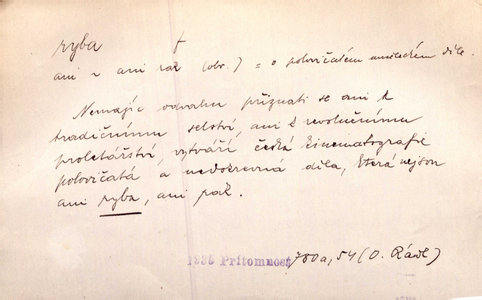 ryba †
ani ~ ani rak (obr.) = o polovičatém uměleckém díle.
Nemajíc odvahu přiznati se ani k
tradičnímu selství, ani k revolučnímu
proletářství, vytváří česká kinematografie
polovičatá a nedokrevná díla, která nejsou
ani ryba, ani rak.
1936 Přítomnost 780a, 54 (O. Rádl)